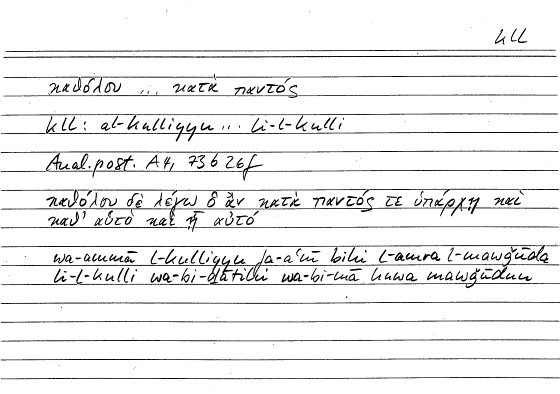 kll
καθόλου ... κατὰ παντός
kll: al-kulliyyu ... li-l-kulli
Anal. post. A4, 73 b 26f
καθόλου δὲ λέγω ὃ ἂν κατὰ παντός τε ὑπάρχῃ καὶ
καθ' αὑτὸ καὶ ᾗ αὐτό
wa-ammā l-kulliyyu fa-aʿnī bihi l-amra l-mawǧūda
li-l-kulli wa-bi-ḏātihi wa-bi-mā huwa mawǧūdun